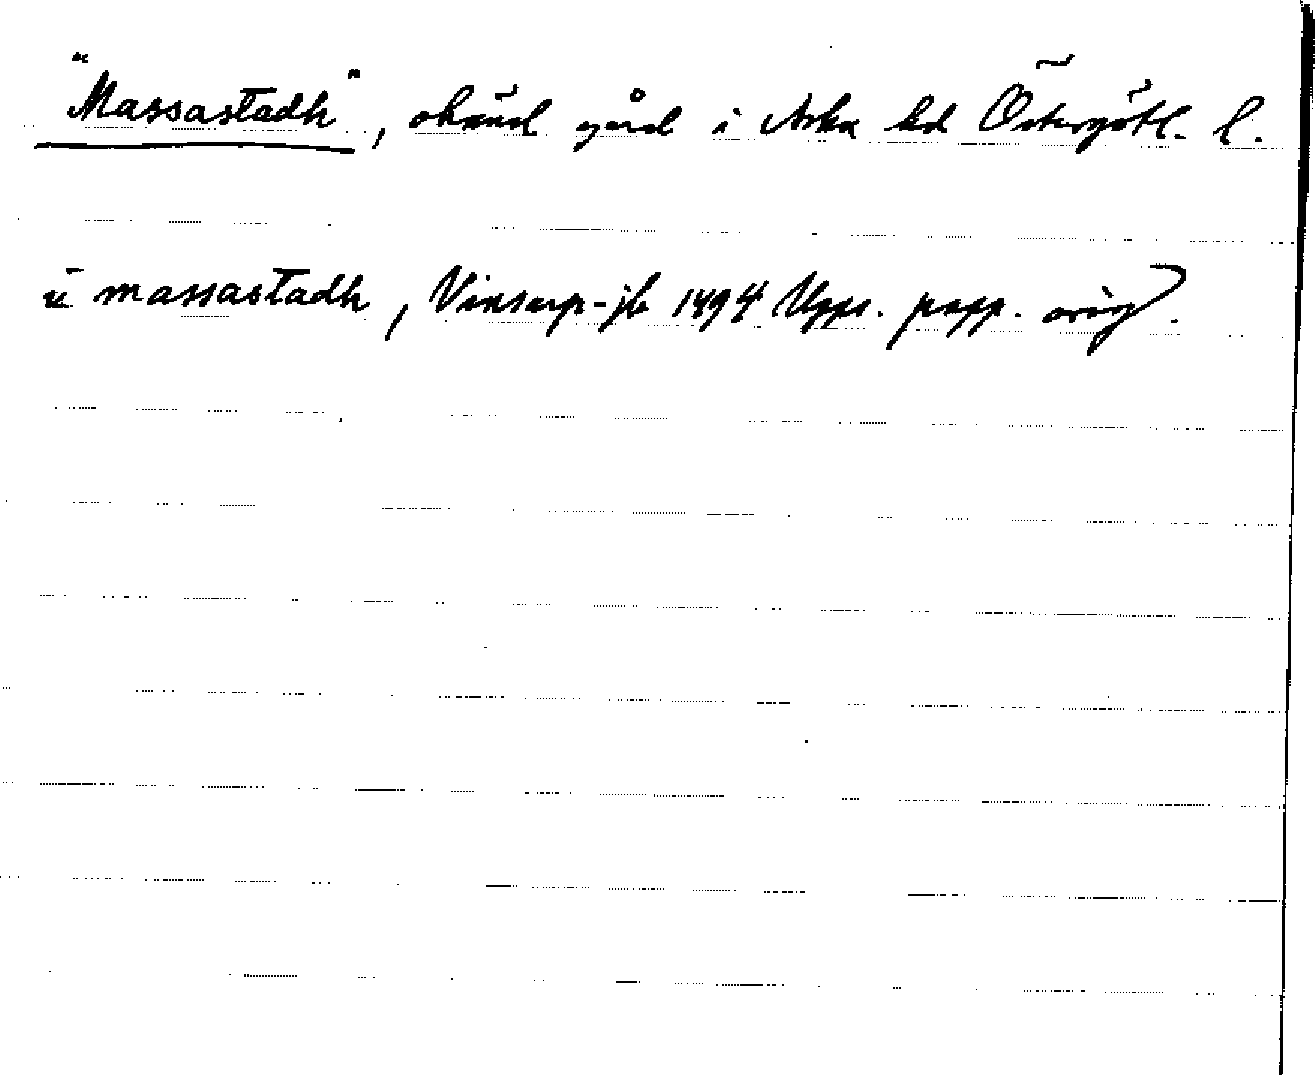 "Massastadh", okänd gård i Aska hd Östergötl. l.
i massastadh, Vinstorp-jb 1494 Upps. papp. orig.